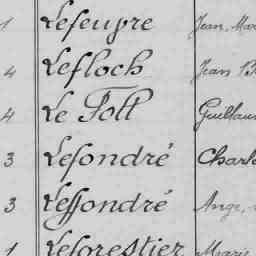 1 Lefeuvre Jean, Mar
4 Lefloch Jean B
4 Le Foll Guillaum
3 Lefondré Charl
3 Leffondré Ange,
1 Leforestier Marie